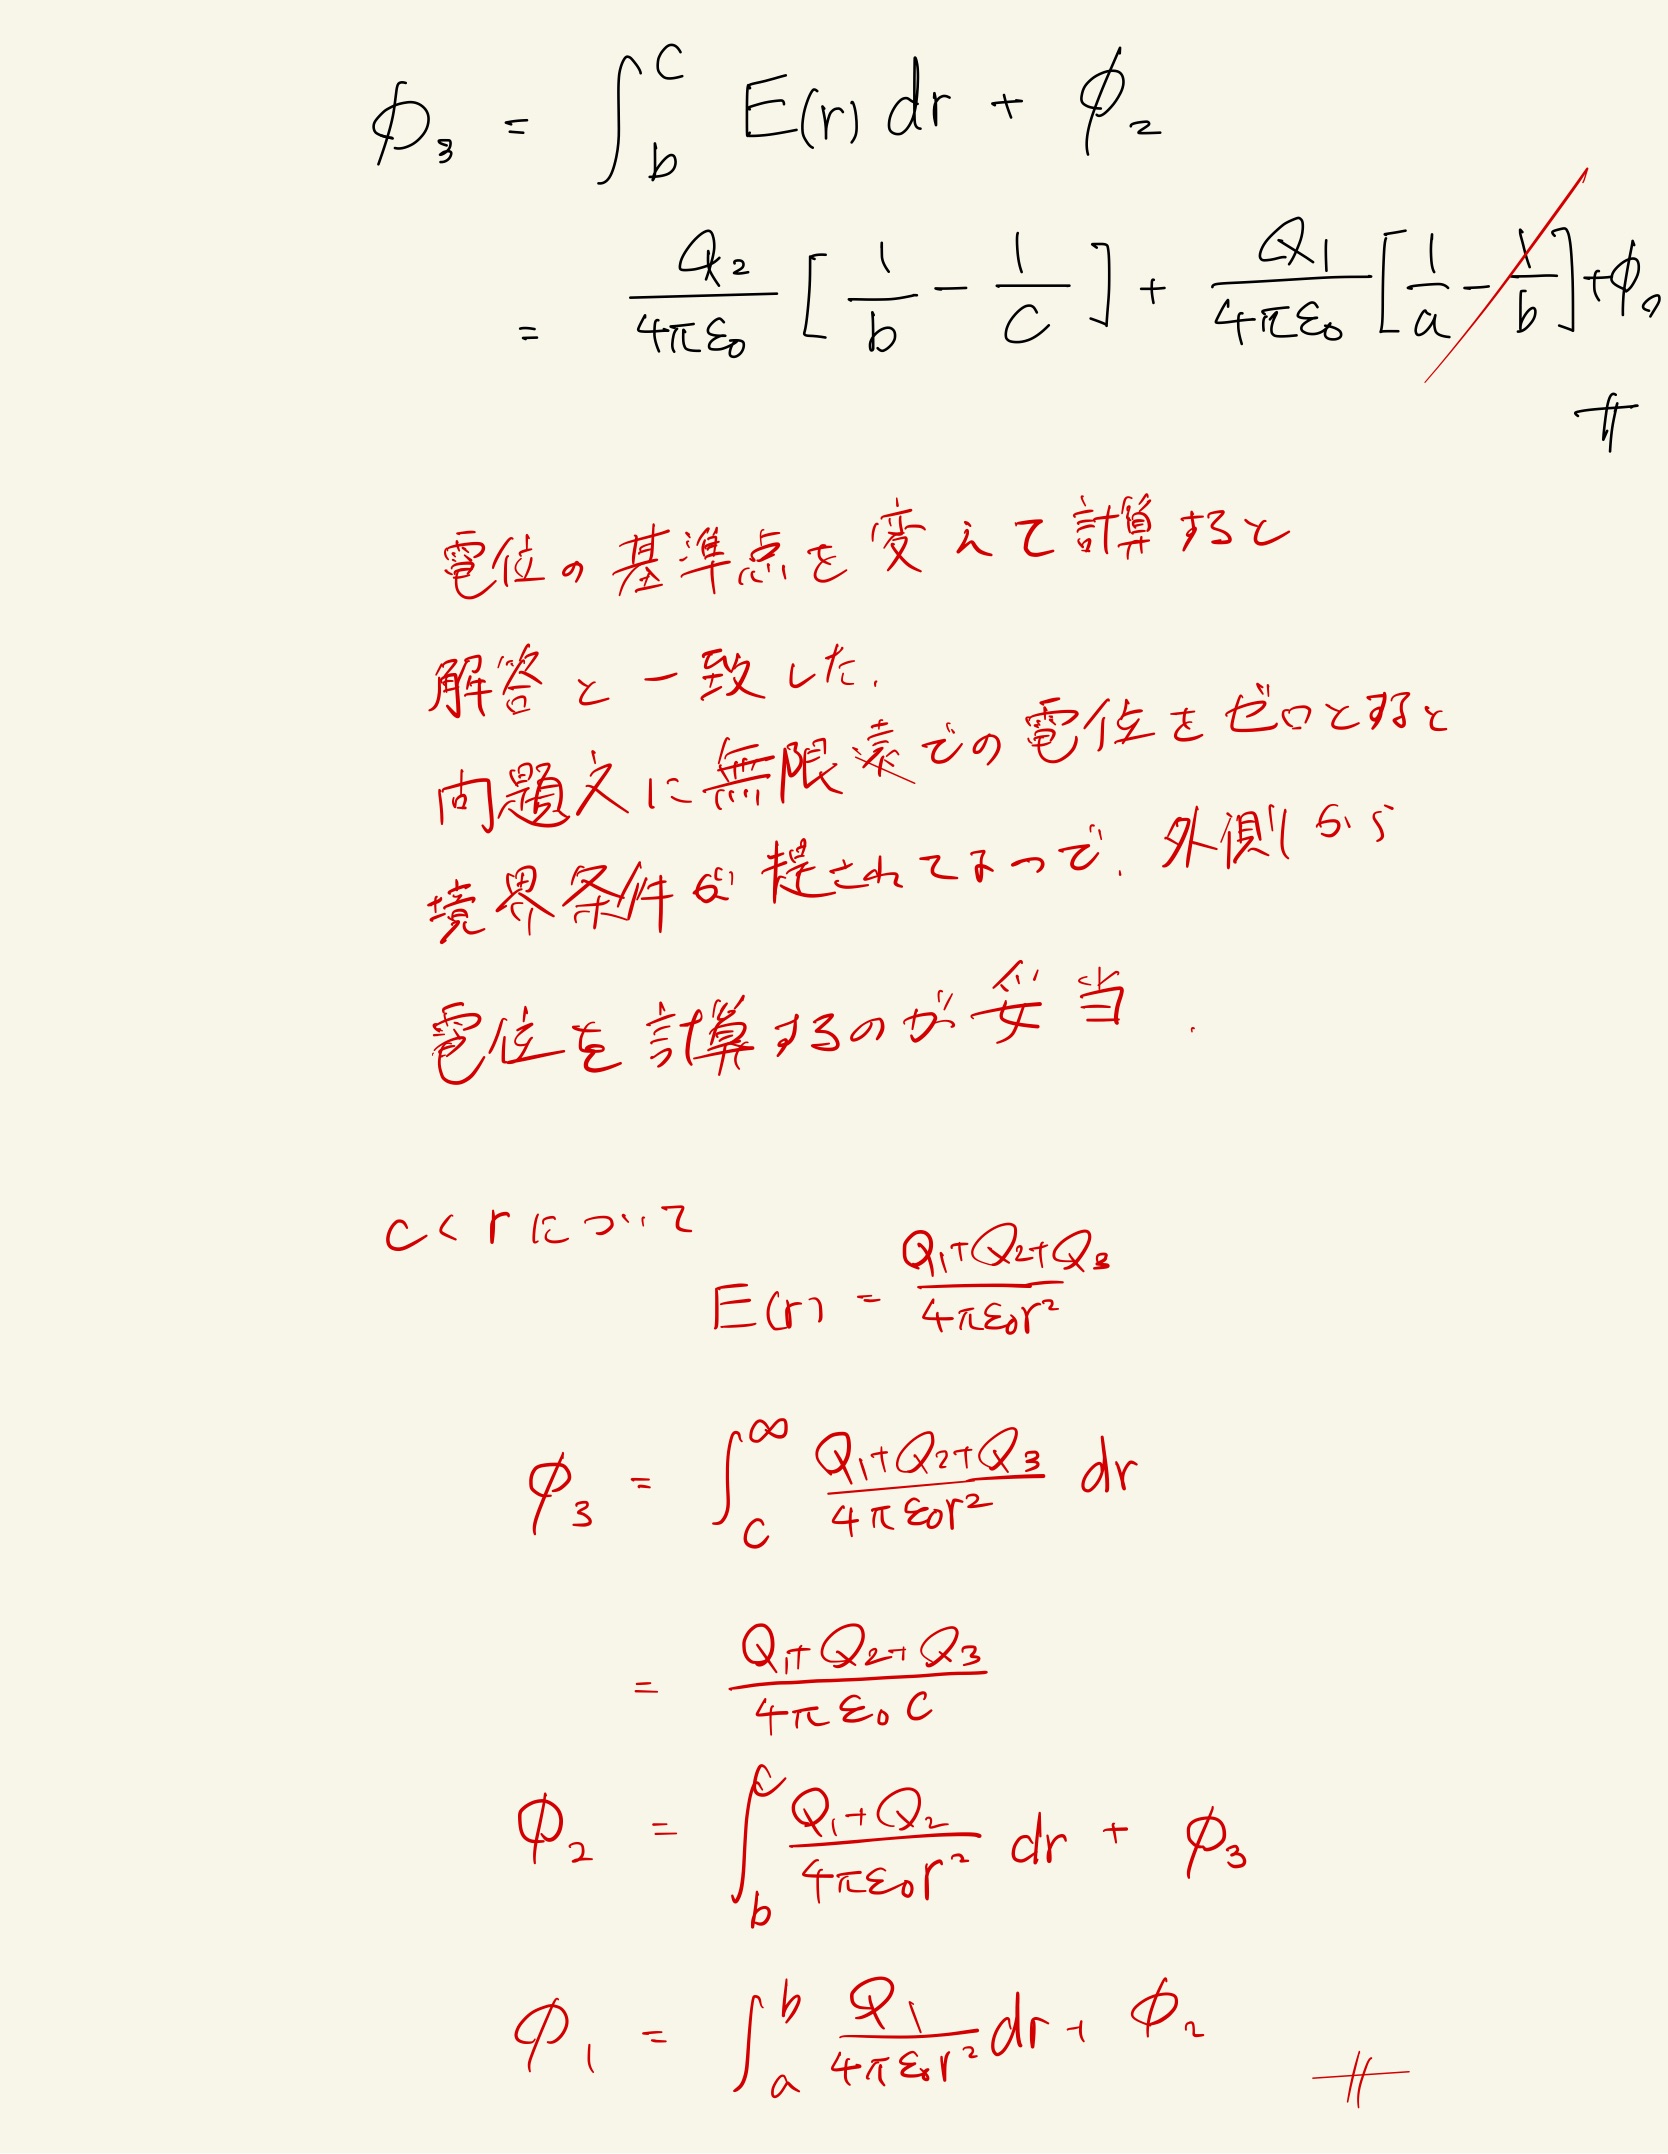 φ₃ = ∫_b^c E(r) dr + φ₂
= Q₂/4πε₀ [1/b − 1/c] + Q₁/4πε₀ [1/a − 1/b] + φ₀
電位の基準点を変えて計算すると
解答と一致した.
問題文に無限遠での電位をゼロとすると
境界条件が提されてるので、外側から
電位を計算するのが妥当.
c < r について
E(r) = Q₁+Q₂+Q₃/4πε₀r²
φ₃ = ∫_c^∞ Q₁+Q₂+Q₃/4πε₀r² dr
= Q₁+Q₂+Q₃/4πε₀c
φ₂ = ∫_b^c Q₁+Q₂/4πε₀r² dr + φ₃
φ₁ = ∫_a^b Q₁/4πε₀r² dr + φ₂